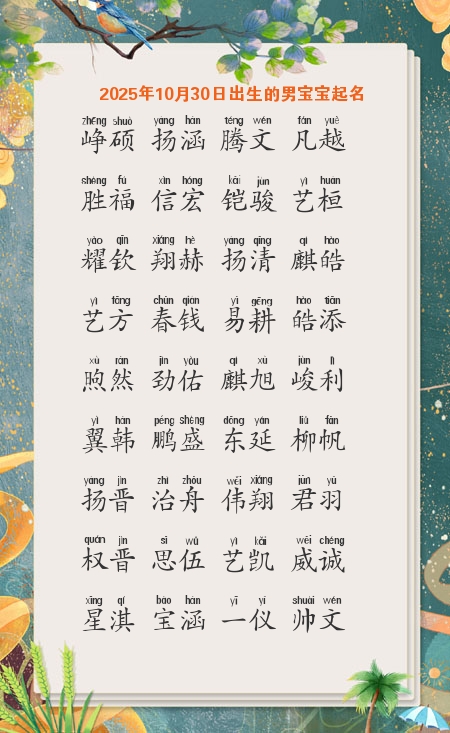 2025年10月30日出生的男宝宝起名
zhēng shuò yáng hán téng wén fán yuè
峥硕 扬涵 腾文 凡越
shèng fú xìn hóng kǎi jùn yì huán
胜福 信宏 铠骏 艺桓
yào qīn xiáng hè yáng qīng qí hào
耀钦 翔赫 扬清 麒皓
yì fāng chūn qián yì gēng hào tiān
艺方 春钱 易耕 皓添
xù rán jìn yòu qí xù jùn lì
煦然 劲佑 麒旭 峻利
yì hán péng shèng dōng yán liǔ fān
翼韩 鹏盛 东延 柳帆
yáng jìn zhì zhōu wěi xiáng jūn yǔ
扬晋 治舟 伟翔 君羽
quán jìn sī wǔ yì kǎi wēi chéng
权晋 思伍 艺凯 威诚
xīng qí bǎo hán yī yí shuài wén
星淇 宝涵 一仪 帅文